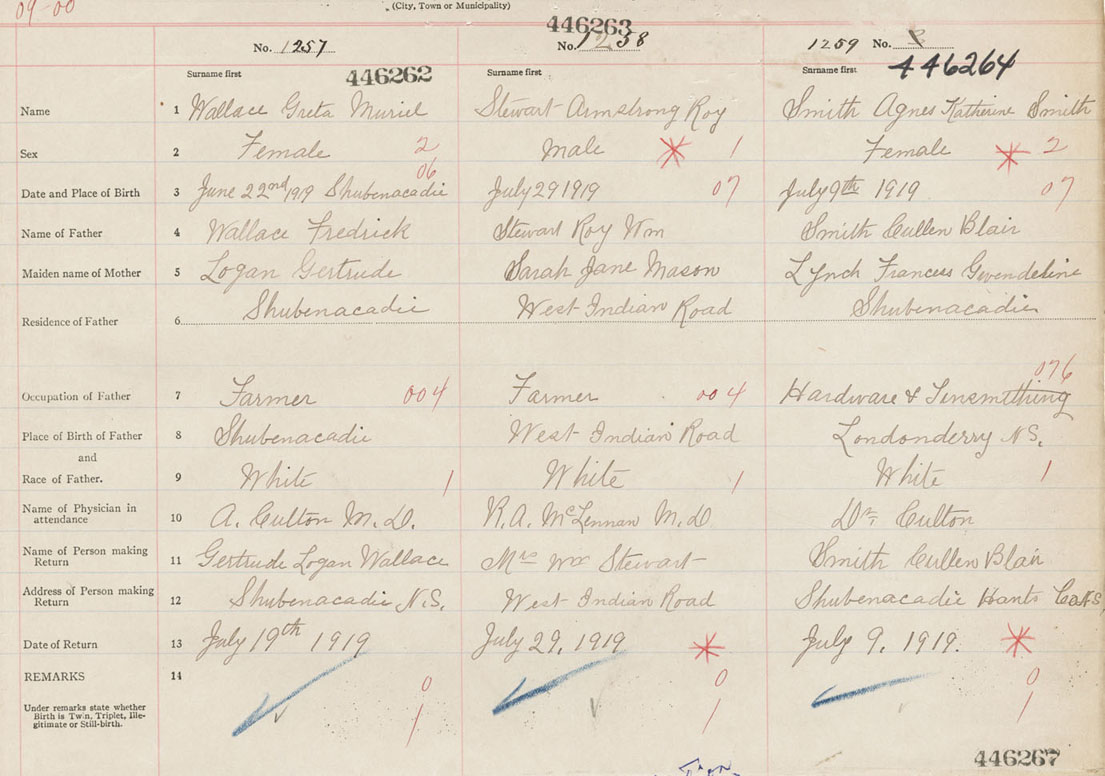 09-00
(City, Town or Municipality)
446263
No. 1257 No. 1258 1259 No. 8
Surname first 446262 Surname first Surname first 446264
Name 1 Wallace Greta Muriel Stewart Armstrong Roy Smith Agnes Katherine Smith
Sex 2 Female 2 Male 1 Female 2
06
Date and Place of Birth 3 June 22nd 1919 Shubenacadie July 29 1919 07 July 9th 1919 07
Name of Father 4 Wallace Fredrick Stewart Roy Wm Smith Cullen Blair
Maiden name of Mother 5 Logan Gertrude Sarah Jane Mason Lynch Frances Gwendeline
Residence of Father 6 Shubenacadie West Indian Road Shubenacadie
076
Occupation of Father 7 Farmer 004 Farmer 004 Hardware & Tinsmithing
Place of Birth of Father 8 Shubenacadie West Indian Road Londonderry N.S.
and
Race of Father. 9 White 1 White 1 White 1
Name of Physician in
attendance 10 A. Culton M.D. R.A. McLennan M.D Dr. Culton
Name of Person making
Return 11 Gertrude Logan Wallace Mrs Wm Stewart Smith Cullen Blair
Address of Person making
Return 12 Shubenacadie N.S. West Indian Road Shubenacadie Hants Co NS
Date of Return 13 July 19th 1919 July 29, 1919 July 9, 1919.
REMARKS 14 0 0 0
Under remarks state whether
Birth is Twin, Triplet, Ille-
gitimate or Still-birth. 1 1 1
446267